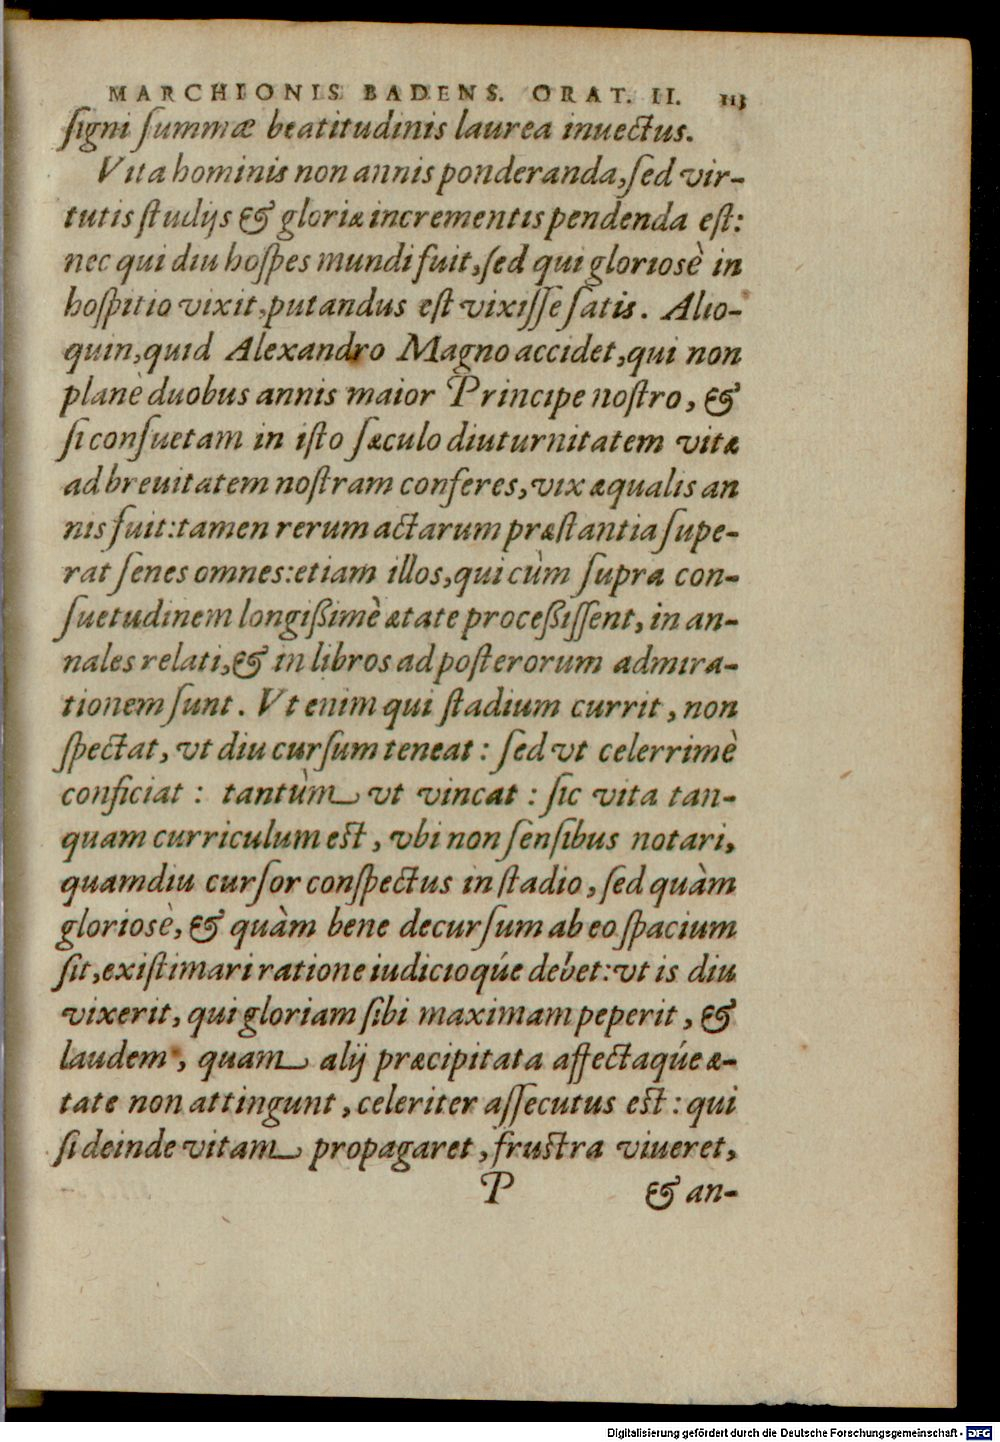 MARCHIONIS BADENS. ORAT. II. 113
ſigni ſummæ beatitudinis laurea inuectus.
Vita hominis non annis ponderanda, ſed vir-
tutis ſtudijs & gloriæ incrementis pendenda eſt:
nec qui diu hoſpes mundi fuit, ſed qui gloriosè in
hoſpitio vixit, putandus eſt vixiſſe ſatis. Alio-
quin, quid Alexandro Magno accidet, qui non
planè duobus annis maior Principe noſtro, &
ſi conſuetam in iſto ſæculo diuturnitatem vitæ
ad breuitatem noſtram conferes, vix æqualis an
nis fuit: tamen rerum actarum præſtantia ſupe-
rat ſenes omnes: etiam illos, qui cùm ſupra con-
ſuetudinem longißimè ætate proceßiſſent, in an-
nales relati, & in libros ad poſterorum admira-
tionem ſunt. Vt enim qui ſtadium currit, non
ſpectat, vt diu curſum teneat: ſed vt celerrimè
conficiat: tantùm vt vincat: ſic vita tan-
quam curriculum eſt, vbi non ſenſibus notari,
quamdiu curſor conſpectus in ſtadio, ſed quàm
gloriosè, & quàm bene decurſum ab eo ſpacium
ſit, exiſtimari ratione iudicioqúe debet: vt is diu
vixerit, qui gloriam ſibi maximam peperit, &
laudem, quam alij præcipitata affectaqúe æ-
tate non attingunt, celeriter aſſecutus eſt: qui
ſi deinde vitam propagaret, fruſtra viueret,
P & an-
Digitalisierung gefördert durch die Deutsche Forschungsgemeinschaft - DFG